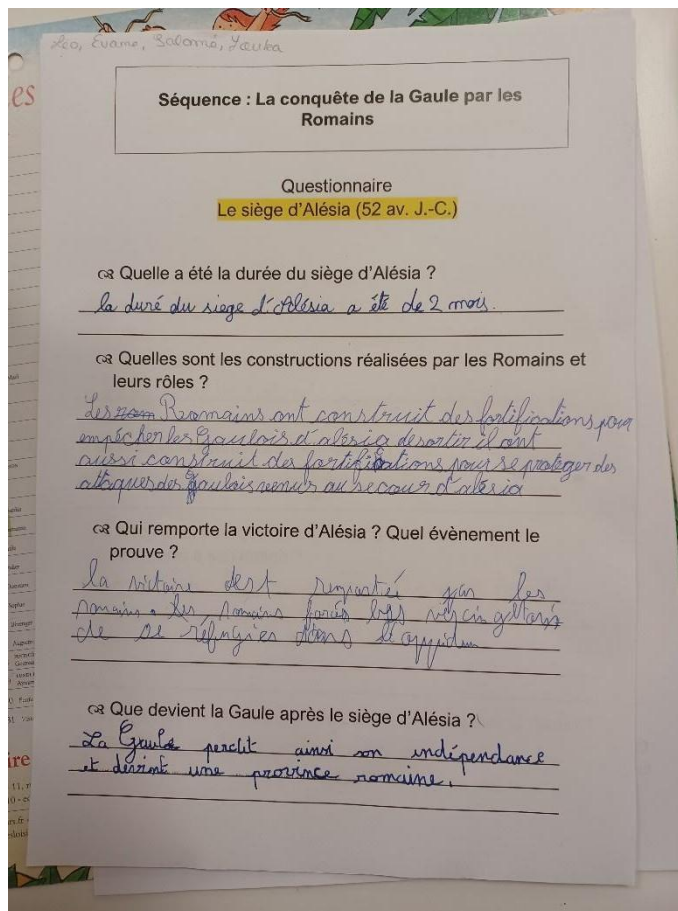 Leo, Evame, Salomé, Louka
Séquence : La conquête de la Gaule par les
Romains
Questionnaire
Le siège d'Alésia (52 av. J.-C.)
Quelle a été la durée du siège d'Alésia ?
la duré du siege d'Alésia a été de 2 mois.
Quelles sont les constructions réalisées par les Romains et
leurs rôles ?
Les Romains ont construit des fortifications pour
empécher les Gaulois d'alésia de sortir il ont
aussi construit des fortifications pour se protéger des
attaques des gaulois venus au secour d'alésia
Qui remporte la victoire d'Alésia ? Quel évènement le
prouve ?
la victoire est remportée par les
romains. les romains
de se réfugier dans l'oppidum
Que devient la Gaule après le siège d'Alésia ?
La Gaule perdit ainsi son indépendance
et devint une province romaine.
es
ire